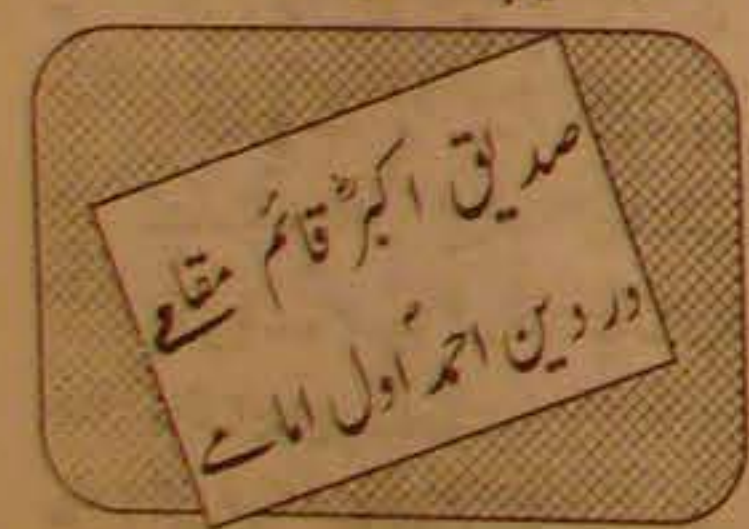 صدیق اکبرؓ قائم مقامے
در دین احمدؐ اول امامے